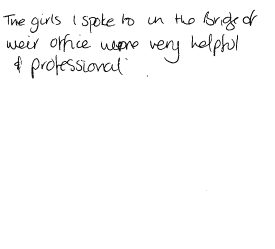 The girls I spoke to in the Bridge of
weir office were very helpful
& professional